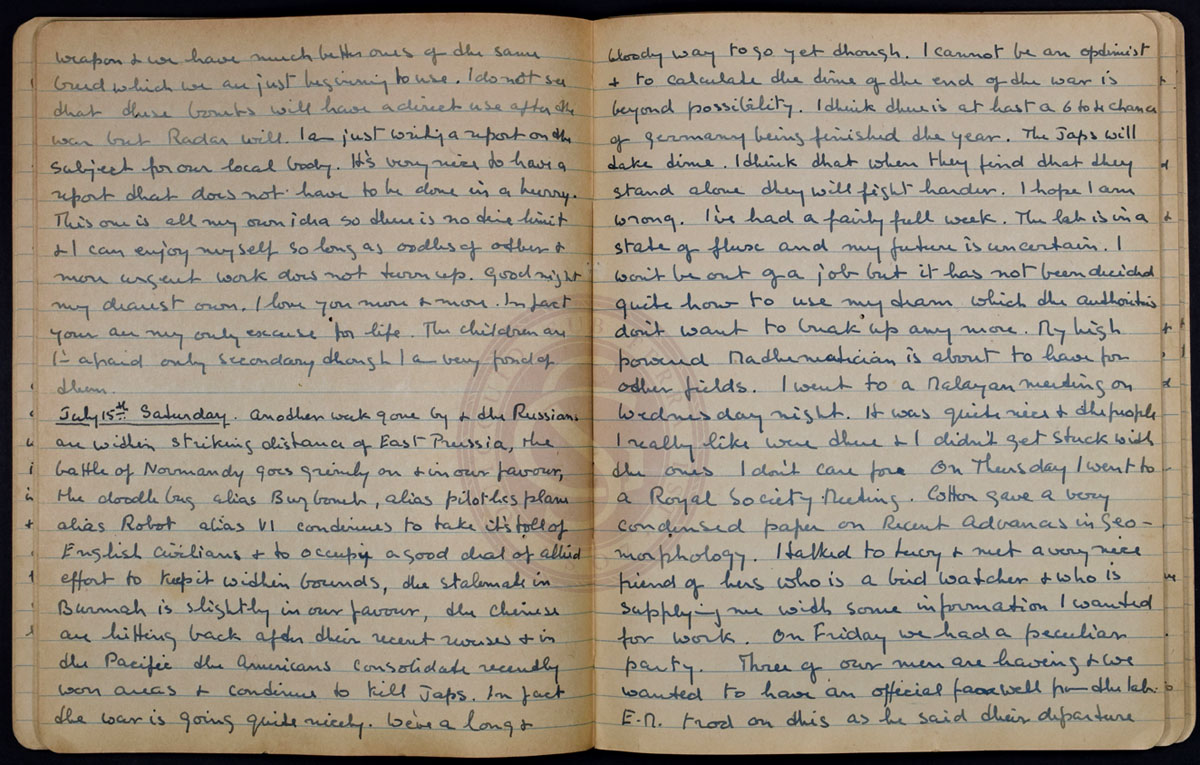 weapon & we have much better ones of the same
breed which we are just beginning to use. I do not see
that these bombs will have a direct use after the
war but Radar will. I am just writing a report on the
subject for our local body. It's very nice to have a
report that does not have to be done in a hurry.
This one is all my own idea so there is no time limit
& I can enjoy myself so long as oodles of other &
more urgent work does not turn up. Good night
my dearest own. I love you more & more. In fact
your are my only excuse for life. The children are
I'm afraid only secondary though I am very fond of
them.
July 15th Saturday. Another week gone by & the Russians
are within striking distance of East Prussia, the
battle of Normandy goes grimly on & in our favour,
the doodle bug alias Buzbomb, alias pilotless plane
alias Robot alias V1 continues to take it's toll of
English civilians & to occupy a good deal of allied
effort to keep it within bounds, the stalemate in
Burmah is slightly in our favour, the Chinese
are hitting back after their recent reverses & in
the Pacific the Americans consolidate recently
won areas & continue to kill Japs. In fact
the war is going quite nicely. We've a long &
bloody way to go yet though. I cannot be an optimist
& to calculate the time of the end of the war is
beyond possibility. I think there is at least a 6 to 4 chance
of Germany being finished the year. The Japs will
take time. I think that when they find that they
stand alone they will fight harder. I hope I am
wrong. I've had a fairly full week. The lab is in a
state of flux and my future is uncertain. I
won't be out of a job but it has not been decided
quite how to use my team which the authorities
don't want to break up any more. My high
powered Mathematician is about to leave for
other fields. I went to a Malayan meeting on
Wednesday night. It was quite nice & the people
I really like were there & I didn't get stuck with
the ones I don't care for. On Thursday I went to
a Royal Society Meeting. Cotton gave a very
condensed paper on Recent Advances in Geo-
morphology. I talked to Lucy & met a very nice
friend of hers who is a bird watcher & who is
supplying me with some information I wanted
for work. On Friday we had a peculiar
party. Three of our men are leaving & we
wanted to have an official farewell from the lab.
E.M. trod on this as he said their departure